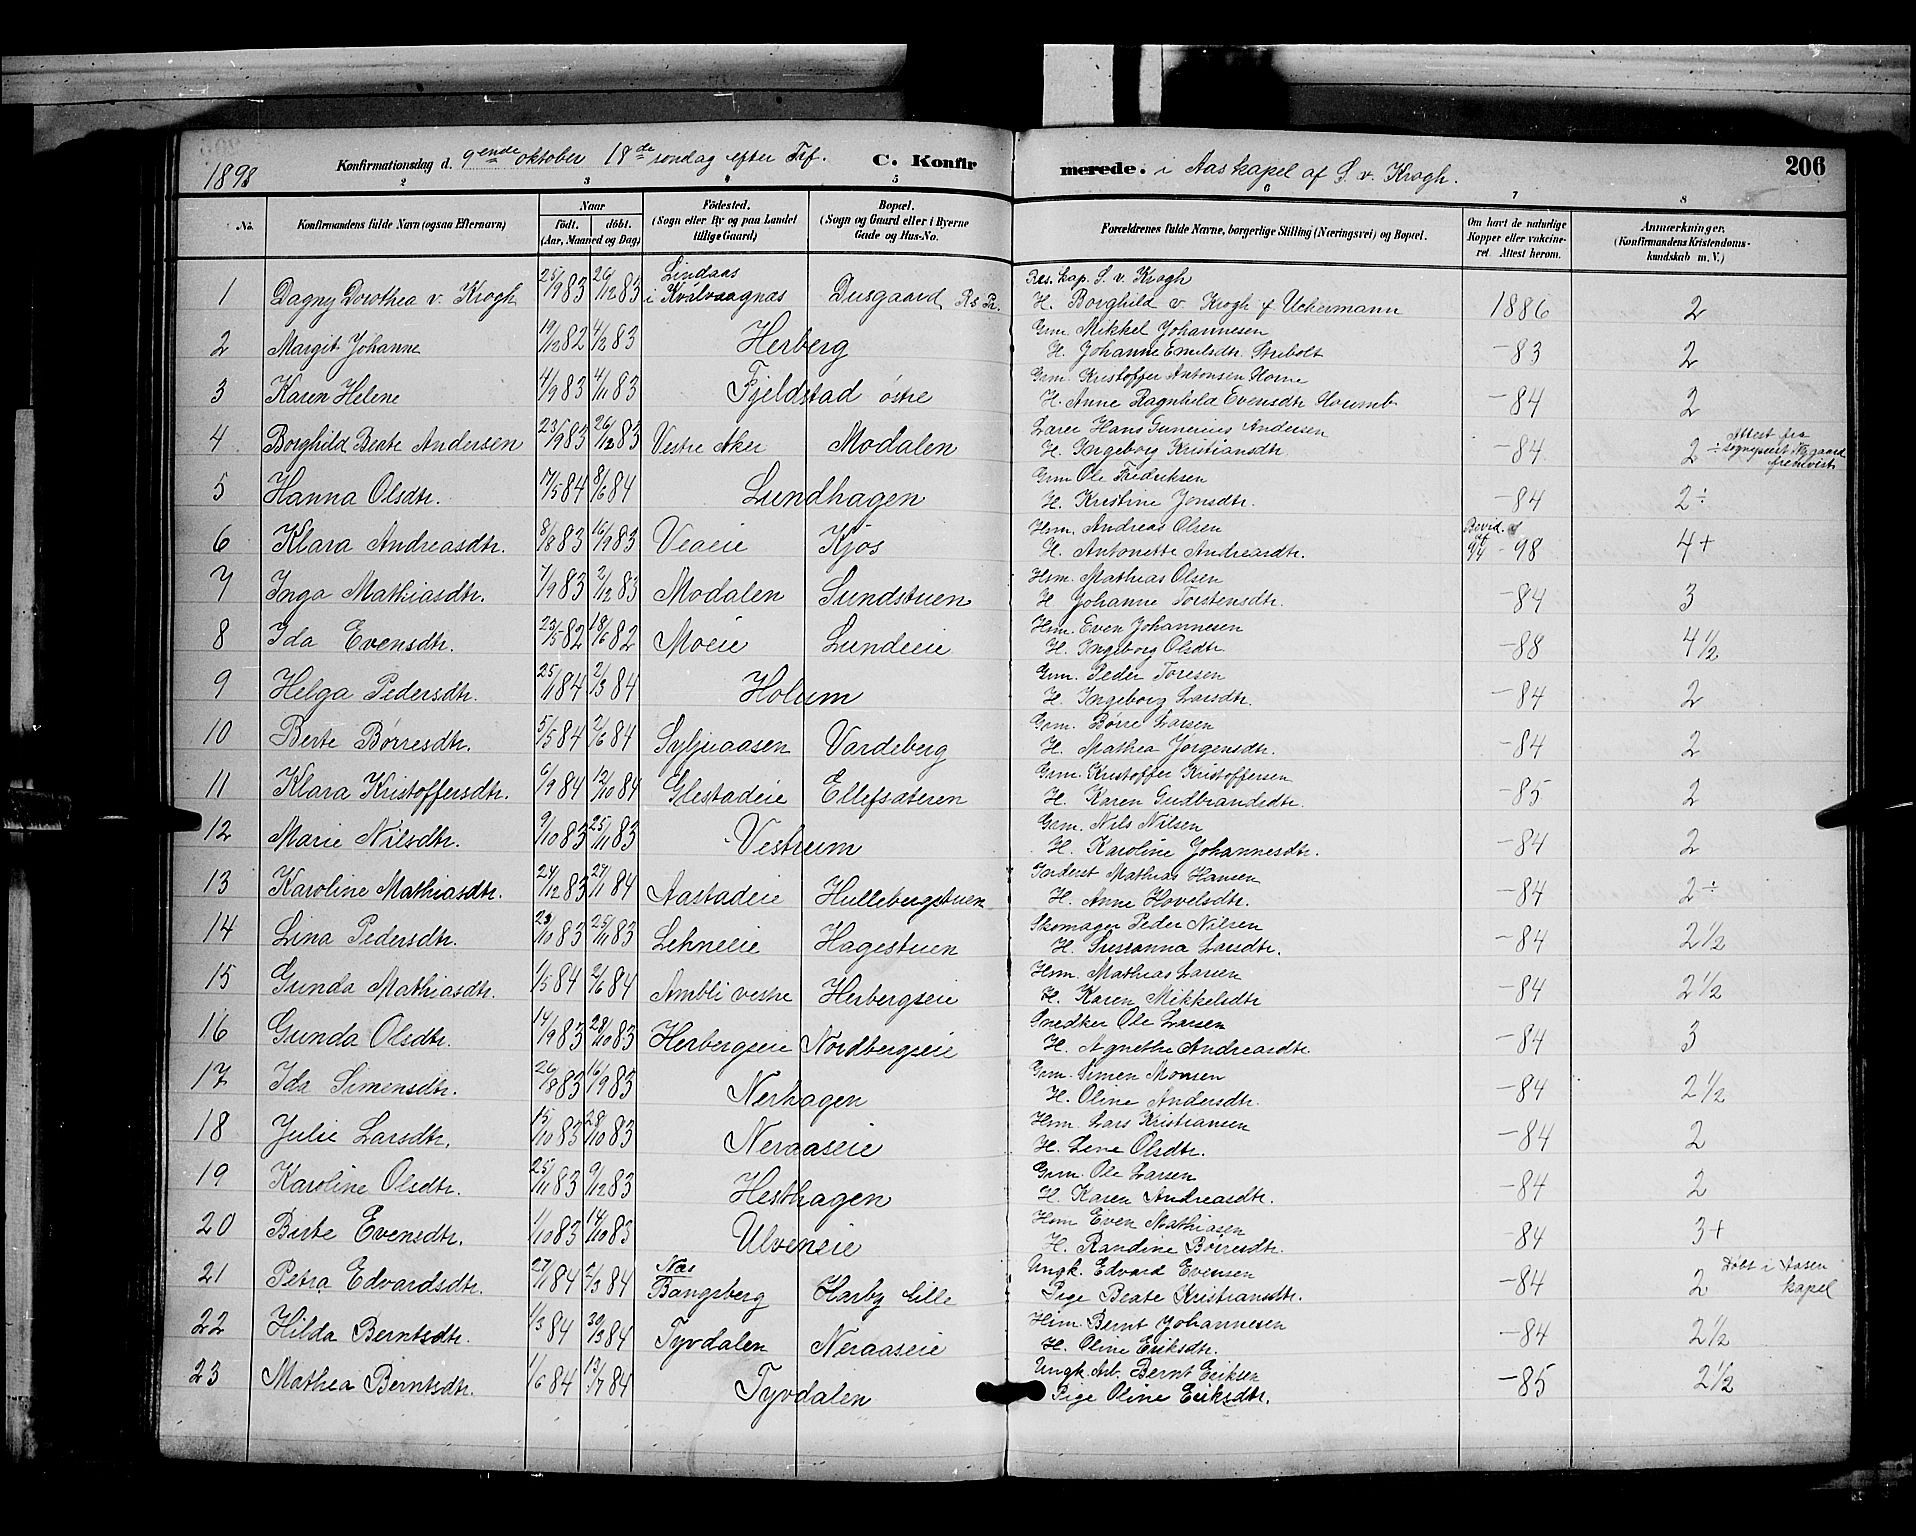 1898 Konfirmationsdag d. 9ende oktober 18de søndag efter Trf. C. Konfirmerede. i Aas kapel af S. v. Krogh. 206
2 3 4 5 6 7 8
No. Konfirmandens fulde Navn (ogsaa Efternavn) Naar født. døbt. (Aar, Maaned og Dag) Fødested. (Sogn eller By og paa Landet tillige Gaard) Bopæl. (Sogn og Gaard eller i Byerne Gade og Hus-No. Forældrenes fulde Navne, borgerlige Stilling (Næringsvei) og Bopæl. Om havt de naturlige Kopper eller vakcineret. Attest herom. Anmærkninger. (Konfirmandens Kristendomskundskab m. V.)
Lindaas Res. kap. S. v. Krogh
1 Dagny Dorothea v. Krogh 25/9 83 26/12 83 i Kvalvaagnas Dusgaard H. Borghild v. Krogh f Uckermann 1886 2
Grm. Mikkel Johannesen
2 Margit Johanne 19/12 82 4/2 83 Herberg H. Johanne Emilsdtr. Stribolt -83 2
Grm. Kristoffer Antonsen Horne
3 Karen Helene 4/9 83 4/11 83 Fjeldstad østre H. Anne Ragnhild Evensdtr -84 2
Lærer Hans Gunerius Andersen
4 Borghild Beate Andersen 23/9 83 26/12 83 Vestre Aker Modalen H. Ingeborg Kristiansdtr -84 2 Attest fra fremvist
Grm Ole Fredriksen
5 Hanna Olsdtr. 7/5 84 8/6 84 Lundhagen H. Kristine Jonsdtr. -84 2÷
Hsm. Andreas Olsen
6 Klara Andreasdtr. 8/8 83 16/9 83 Veaeie Kjøs H. Antonette Andreasdtr. Bevid. af 9/4 -98 4+
Hsm. Mathias Olsen
7 Inga Mathiasdtr. 7/9 83 2/12 83 Modalen Sundstuen H Johanne Torstensdtr. -84 3
Hsm. Even Johannesen
8 Ida Evensdtr. 23/5 82 18/6 82 Moeie Lundeie H. Ingeborg Olsdtr -88 4½
Grm. Peder Toresen
9 Helga Pedersdtr. 25/1 84 2/3 84 Holum H. Ingeborg Larsdtr. -84 2
Grm. Børre Larsen
10 Berte Børresdtr. 5/5 84 2/6 84 Syljuaasen Vardeberg H. Mathea Jørgensdtr. -84 2
Grm. Kristoffer Kristoffersen
11 Klara Kristoffersdtr. 6/9 84 12/10 84 Glestadeie Ellefsæteren H. Karen Gudbrandsdtr. -85 2
Grm. Nils Nilsen
12 Marie Nilsdtr. 9/10 83 25/11 83 Vestrum H. Karoline Johannesdtr. -84 2
Mathias Hansen
13 Karoline Mathiasdtr. 24/12 83 27/11 84 Aastadeie Hullebergstuen H. Anne Hovelsdtr. -84 2÷
Skomager Peder Nilsen
14 Lina Pedersdtr. 23/10 83 25/11 83 Lehneeie Hagestuen H. Susanna Larsdtr. -84 2½
Hsm. Mathias Larsen
15 Gunda Mathiasdtr. 1/5 84 2/6 84 Ambli vestre Herbergseie H. Karen Mikkelsdtr -84 2½
Snedker Ole Larsen
16 Gunda Olsdtr. 14/9 83 28/10 83 Herbergseie Nordbergseie H. Agnethe Andreasdtr. -84 3
Grm. Simen Monsen
17 Ida Simensdtr. 26/8 83 16/9 83 Nerhagen H. Oline Andersdtr. -84 2½
Hsm. Lars Kristiansen
18 Julie Larsdtr. 15/10 83 28/10 83 Neraaseie H. Lene Olsdtr. -84 2
Grm. Ole Larsen
19 Karoline Olsdtr. 25/11 83 9/12 83 Hesthagen H. Karen Andreasdtr. -84 2
Hsm Even Mathiasen
20 Berte Evensdtr. 1/10 83 14/10 83 Ulveneie H. Randine Børresdtr. -84 3+
Næs Ungk. Edvard Evensen
21 Petra Edvardsdtr. 27/1 84 2/3 84 Bangsberg Harby lille Pige Beate Kristiansdtr. -84 2 Døbt i Aasen kapel
Hsm. Bernt Johannesen
22 Hilda Berntsdtr. 1/3 84 30/3 84 Tyvdalen Neraaseie H. Oline Eriksdtr. -84 2½
Ungk. Arb. Bernt Eriksen
23 Mathea Berntsdtr. 1/6 84 13/7 84 Tyvdalen Pige Oline Eriksdtr. -85 2½